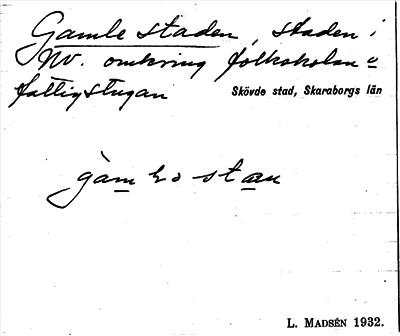 Gamle staden, staden i
NV. omkring folkskolan o
fattigstugan
Skövde stad, Skaraborgs län
gàm lo stan
L. MADSÉN 1932.